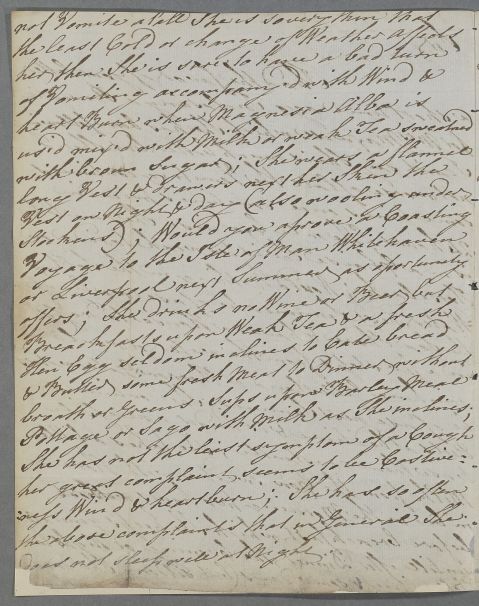 not Vomite at all She is so very thin that
the least Cold or change of Weather affects
her then She is sure to have a bad turn
of Vomiting accompany'd with Wind &
heart Burn when Magnesia Alba is
us'd mix'd with Milk or weak Tea sweatned
with brown Sugar; She wears a flannel
long Vest & Drawers next her Skin the
Vest on Night & day (also woolin under
Stockens) Would you aprove a Coasting
Voyage to the Isle of Man Whitehaven
or Liverpool next Summer as oportunity
offers; She drinks no Wine or Beer but
Breackfasts upon Weak Tea & a fresh
Hen Egg seldom inclines to Eate bread
& Butter some fresh Meat to Dinner without
broath or Greens Sups upon Barley Meal
Pottage or Sago with Milk as She inclines,
She has not the least symptom of a Cough
her great complaint seems to be Costive-
ness Wind & heartburn; She has so often
the above complaints that in General She
does not sleep well at Night